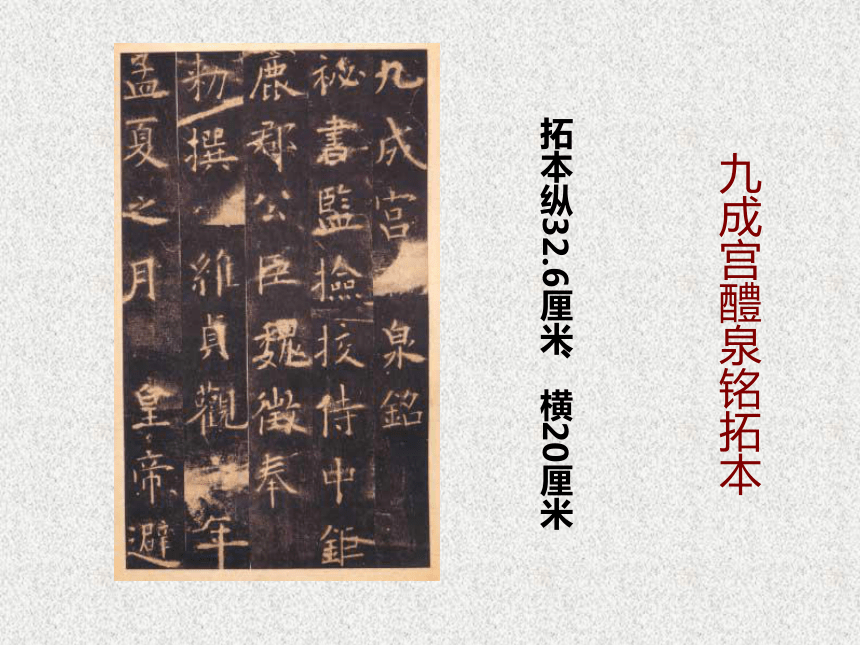 九成宫醴泉铭拓本
拓本纵32.6厘米、 横20厘米
九成宮 泉銘
秘書監撿挍侍中鉅
鹿郡公臣魏徵奉
勑撰 維貞觀 年
孟夏之月 皇帝避